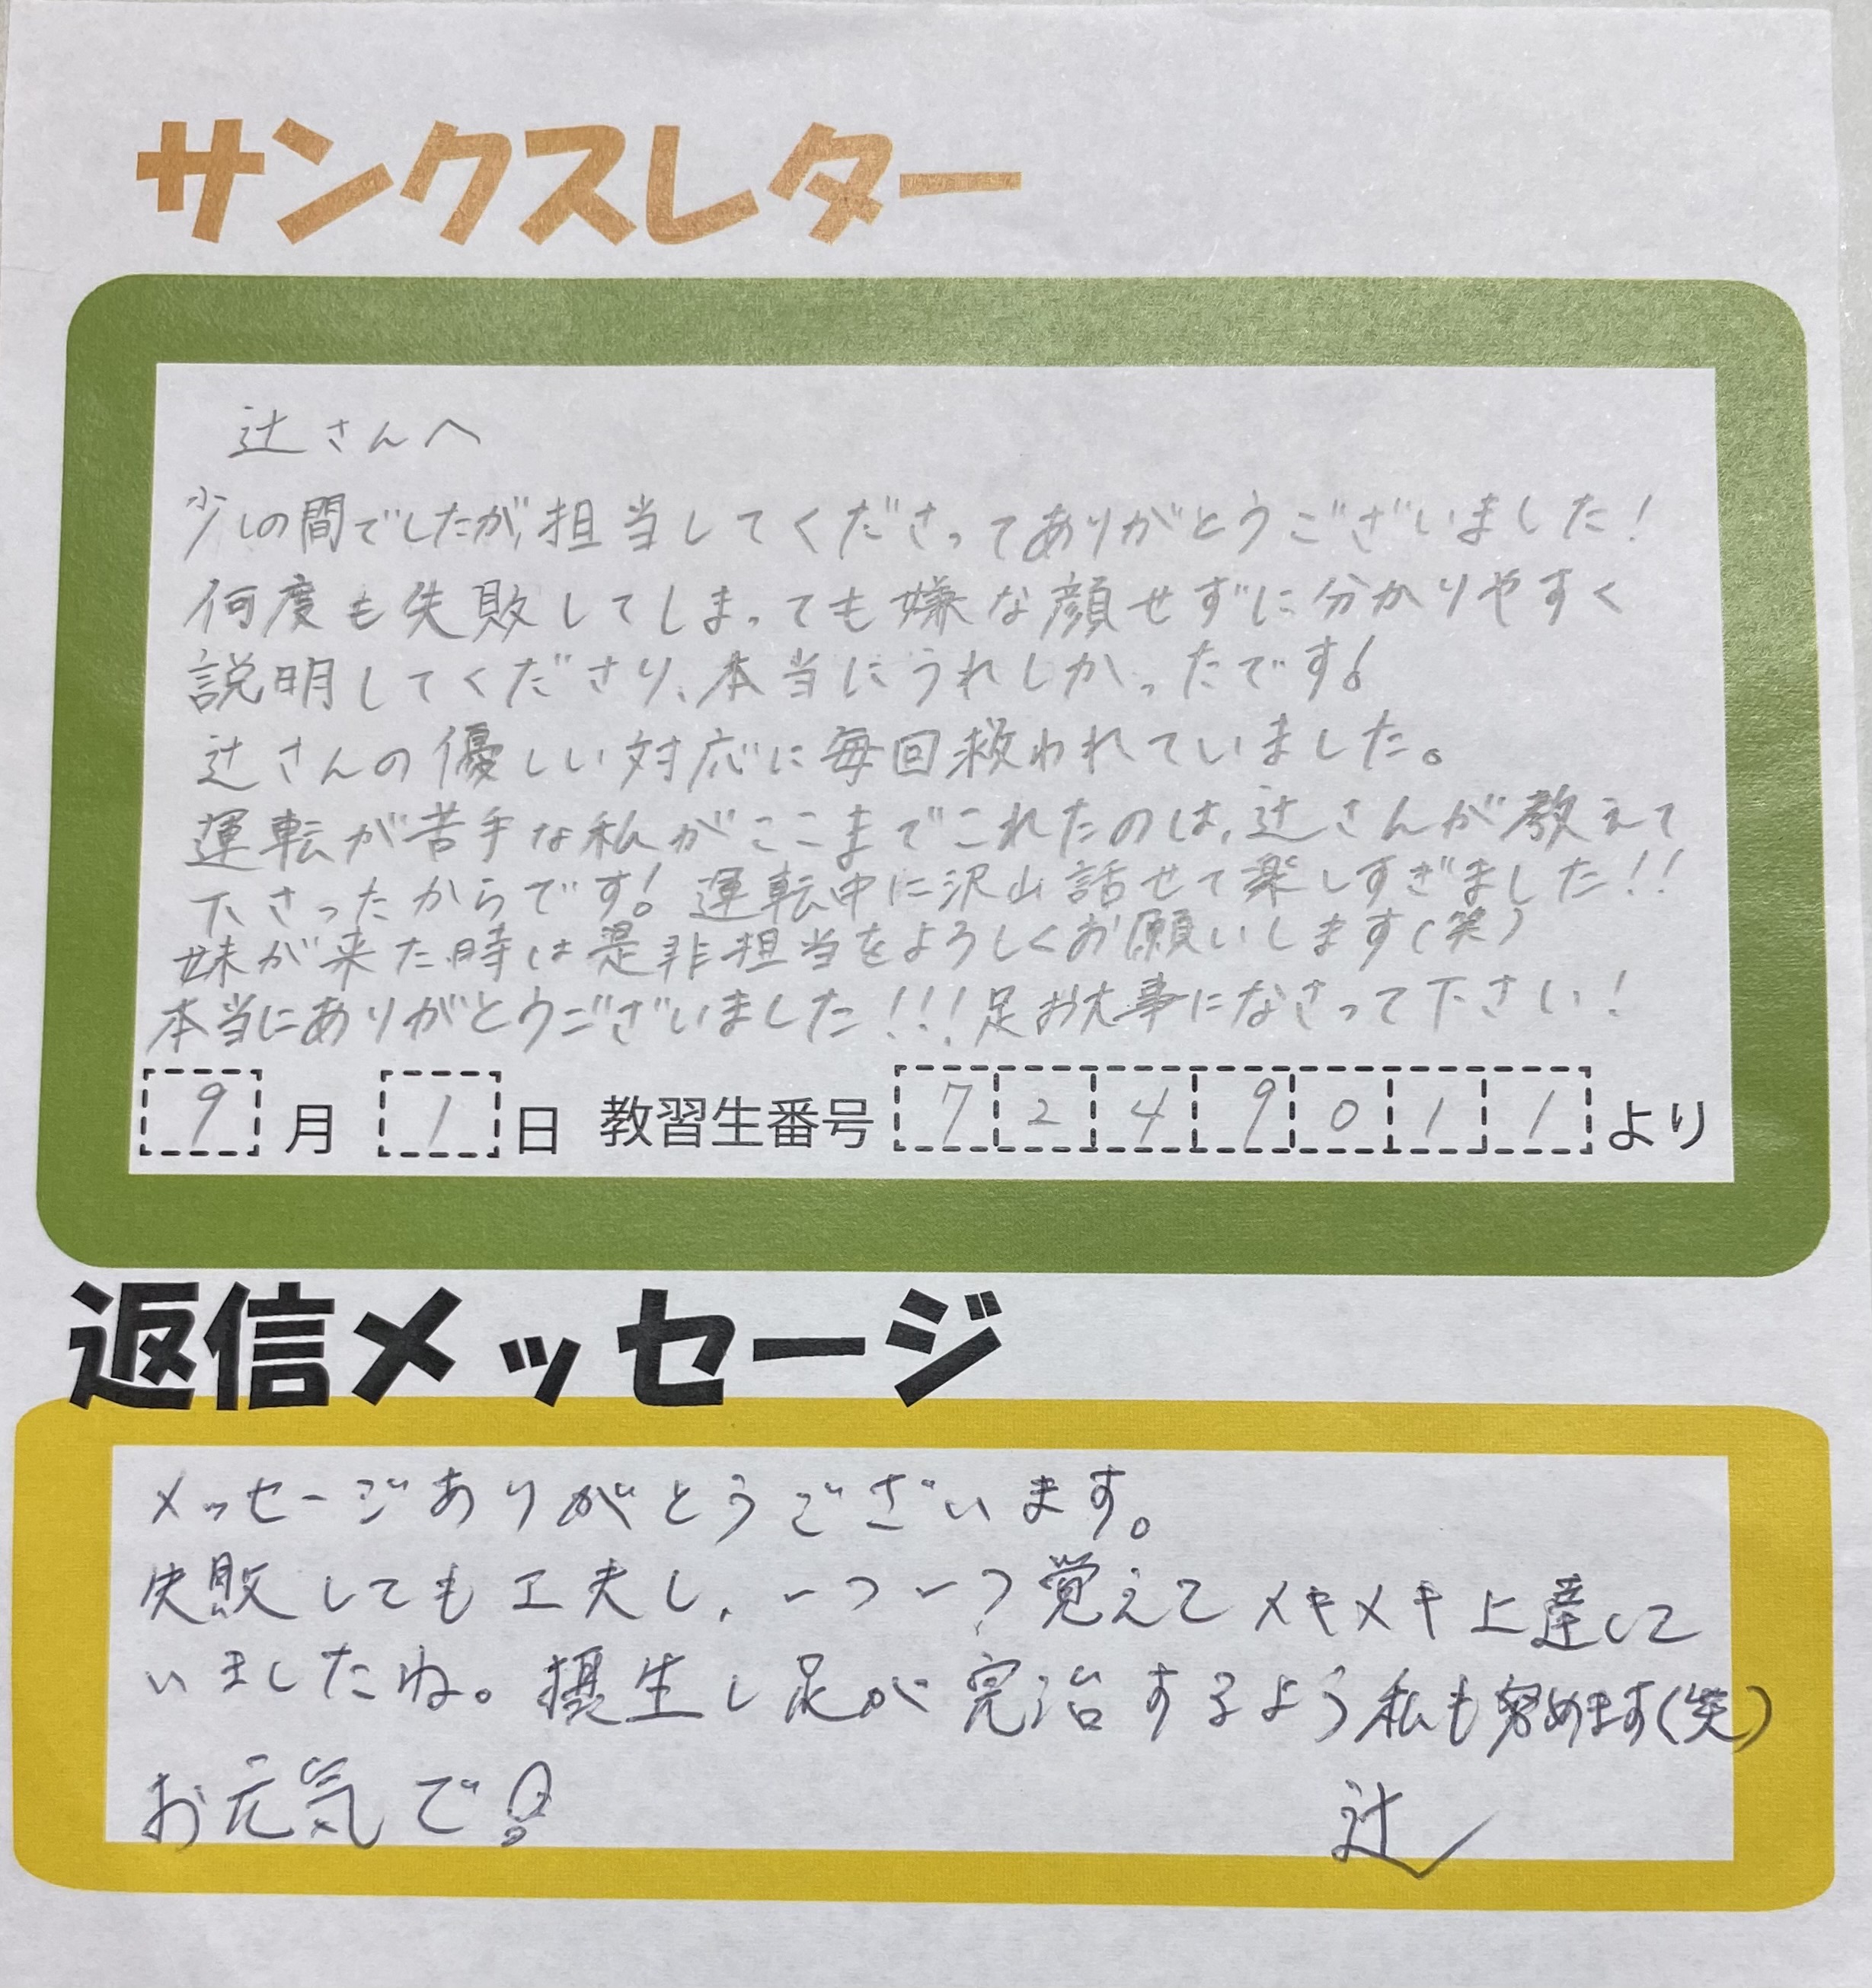 サンクスレター
辻さんへ
少しの間でしたが、担当してくださってありがとうございました!
何度も失敗してしまっても嫌な顔せずに分かりやすく
説明してくださり、本当にうれしかったです!
辻さんの優しい対応に毎回救われていました。
運転が苦手な私がここまでこれたのは、辻さんが教えて
下さったからです! 運転中に沢山話せて楽しすぎました!!
妹が来た時は是非担当をよろしくお願いします(笑)
本当にありがとうございました!!!足お大事になさって下さい!
9月1日 教習生番号 7249011より
返信メッセージ
メッセージありがとうございます。
失敗しても工夫し、一つ一つ覚えてメキメキ上達して
いましたね。摂生し足が完治するよう私も努めます(笑)
お元気で!
辻